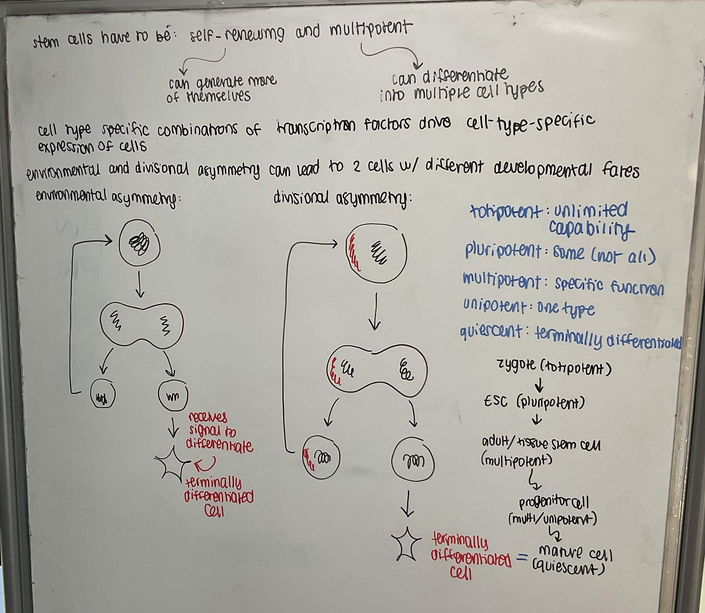 stem cells have to be: self-renewing and multipotent
can generate more
of themselves
can differentiate
into multiple cell types
cell type specific combinations of transcription factors drive cell-type-specific
expression of cells
environmental and divisional asymmetry can lead to 2 cells w/ different developmental fates
environmental asymmetry:
receives
signal to
differentiate
terminally
differentiated
cell
divisional asymmetry:
terminally
differentiated
cell
totipotent: unlimited
capability
pluripotent: some (not all)
multipotent: specific function
unipotent: one type
quiescent: terminally differentiated
zygote (totipotent)
ESC (pluripotent)
adult/tissue stem cell
(multipotent)
progenitor cell
(multi/unipotent)
= mature cell
(quiescent)